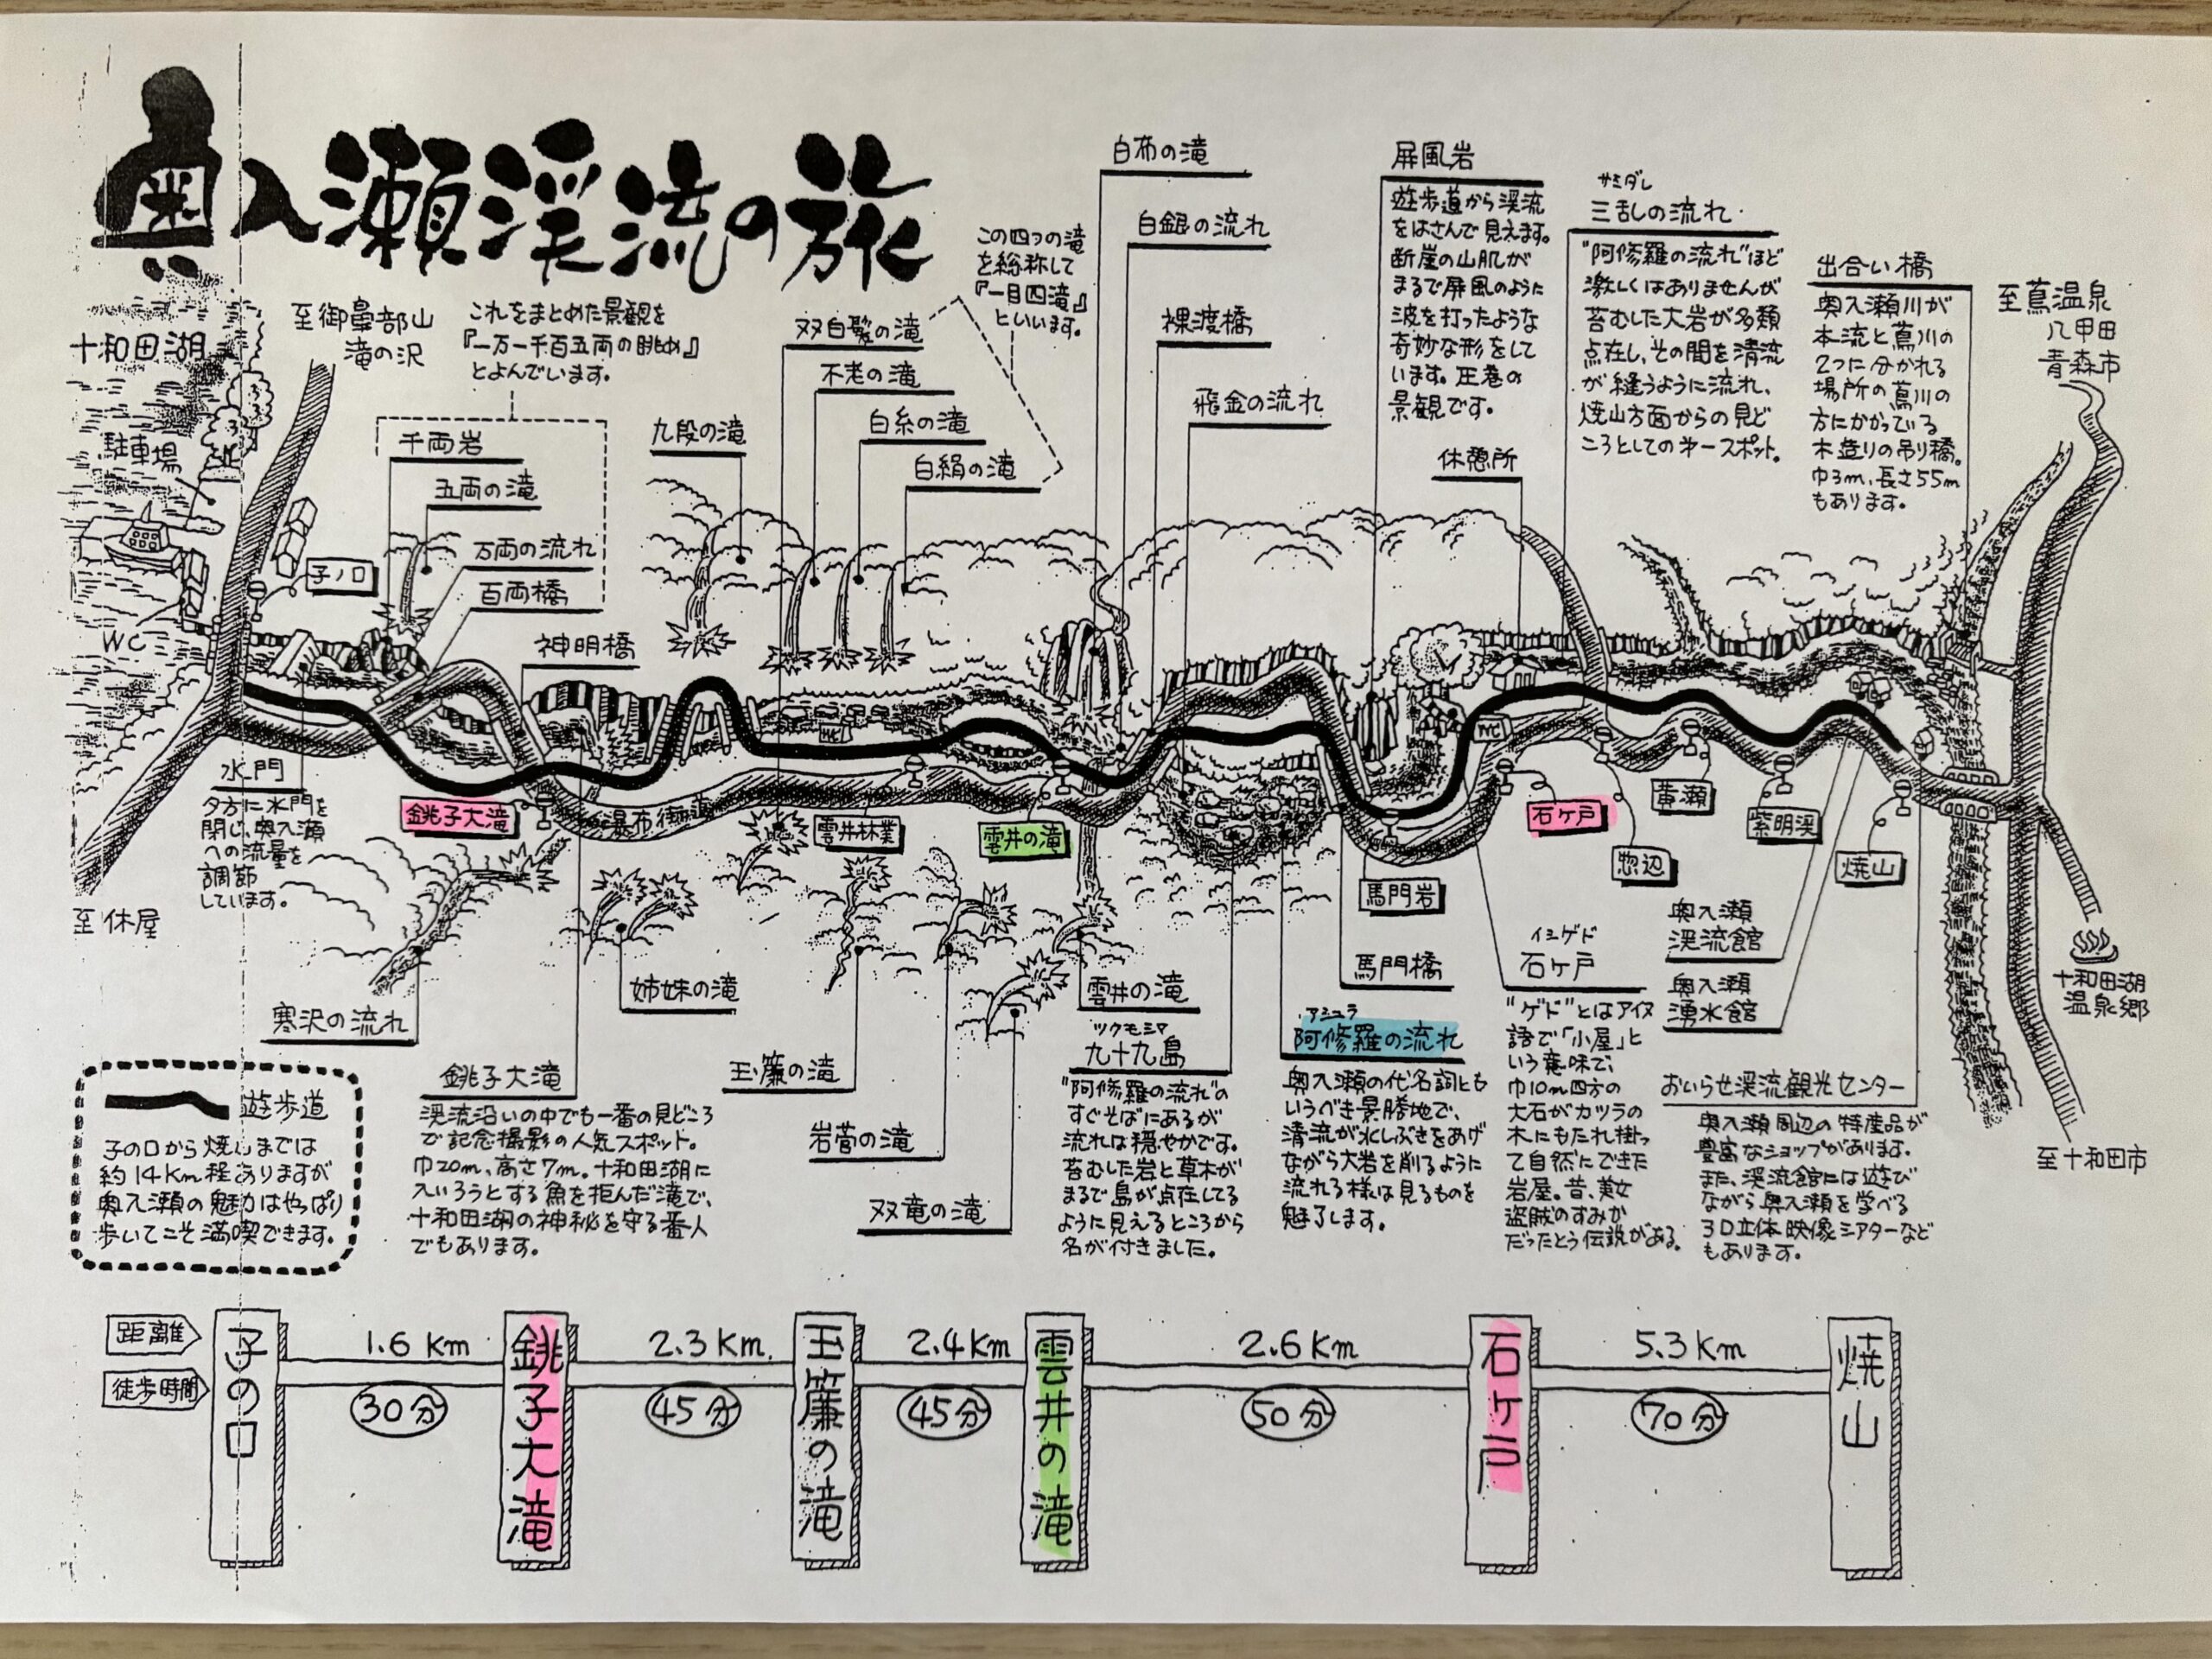 奥入瀬渓流の旅
十和田湖
駐車場
WC
至御鼻部山
滝の沢
これをまとめた景観を
『一万一千百五両の眺め』
とよんでいます。
千両岩
五両の滝
万両の流れ
百両橋
子ノ口
神明橋
九段の滝
双白髪の滝
不老の滝
白糸の滝
白絹の滝
この四つの滝
を総称して
『一目四滝』
といいます。
白布の滝
白銀の流れ
裸渡橋
飛金の流れ
屏風岩
遊歩道から渓流
をはさんで見えます。
断崖の山肌が
まるで屏風のように
波を打ったような
奇妙な形をして
います。圧巻の
景観です。
休憩所
サミダレ
三乱の流れ
"阿修羅の流れ"ほど
激しくはありませんが
苔むした大岩が多類
点在し、その間を清流
が縫うように流れ、
焼山方面からの見ど
ころとしての㐧一スポット。
出合い橋
奥入瀬川が
本流と蔦川の
2つに分かれる
場所の蔦川の
方にかかっている
木造りの吊り橋。
巾3m、長さ55m
もあります。
至蔦温泉
八甲田
青森市
水門
夕方に水門を
閉じ、奥入瀬
への流量を
調節
しています。
至休屋
銚子大滝
瀑布街道
雲井林業
WC
雲井の滝
馬門岩
WC
石ヶ戸
惣辺
黄瀬
紫明渓
焼山
寒沢の流れ
銚子大滝
渓流沿いの中でも一番の見どころ
で記念撮影の人気スポット。
巾20m、高さ7m。十和田湖に
入いろうとする魚を拒んだ滝で、
十和田湖の神秘を守る番人
でもあります。
姉妹の滝
玉簾の滝
岩菅の滝
双竜の滝
雲井の滝
ツクモシマ
九十九島
"阿修羅の流れ"の
すぐそばにあるが
流れは穏やかです。
苔むした岩と草木が
まるで島が点在してる
ように見えるところから
名が付きました。
アシュラ
阿修羅の流れ
奥入瀬の代名詞とも
いうべき景勝地で、
清流が水しぶきをあげ
ながら大岩を削るように
流れる様は見るものを
魅了します。
馬門橋
イシゲド
石ヶ戸
"ゲド"とはアイヌ
語で「小屋」と
いう意味で、
巾10m四方の
大石がカツラの
木にもたれ掛っ
て自然にできた
岩屋。昔、美女
盗賊のすみか
だったとう伝説がある。
奥入瀬
渓流館
奥入瀬
湧水館
おいらせ渓流観光センター
奥入瀬周辺の特産品が
豊富なショップがあります。
また、渓流館には遊び
ながら奥入瀬を学べる
3D立体映像シアターなど
もあります。
十和田湖
温泉郷
至十和田市
遊歩道
子の口から焼山までは
約14Km程ありますが
奥入瀬の魅力はやっぱり
歩いてこそ満喫できます。
距離
徒歩時間
子の口
1.6Km
30分
銚子大滝
2.3Km.
45分
玉簾の滝
2.4Km
45分
雲井の滝
2.6Km
50分
石ヶ戸
5.3Km
70分
焼山